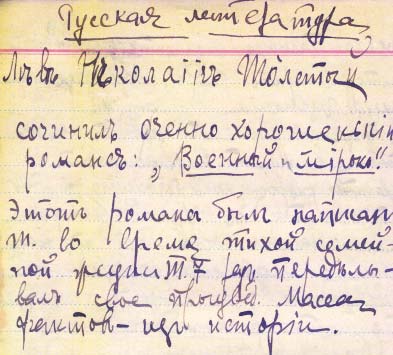 Русская литература
Львъ Николаiiчъ Толстый
сочинилъ оченно хорошенькiй
романсъ: „Военный и мiрько"
Этотъ романъ былъ написан
Т. во время тихой семей-
ной жизни Т. 7 раз передѣлы-
валъ свое произвед. Масса
фактов - из исторiи.